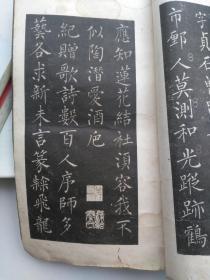 市鄽人莫測和光蹤跡鶴
應知蓮花結社湏容我不
似陶潛愛酒巵
紀贈歌詩數百人序師多
藝各求新未言篆隸飛龍